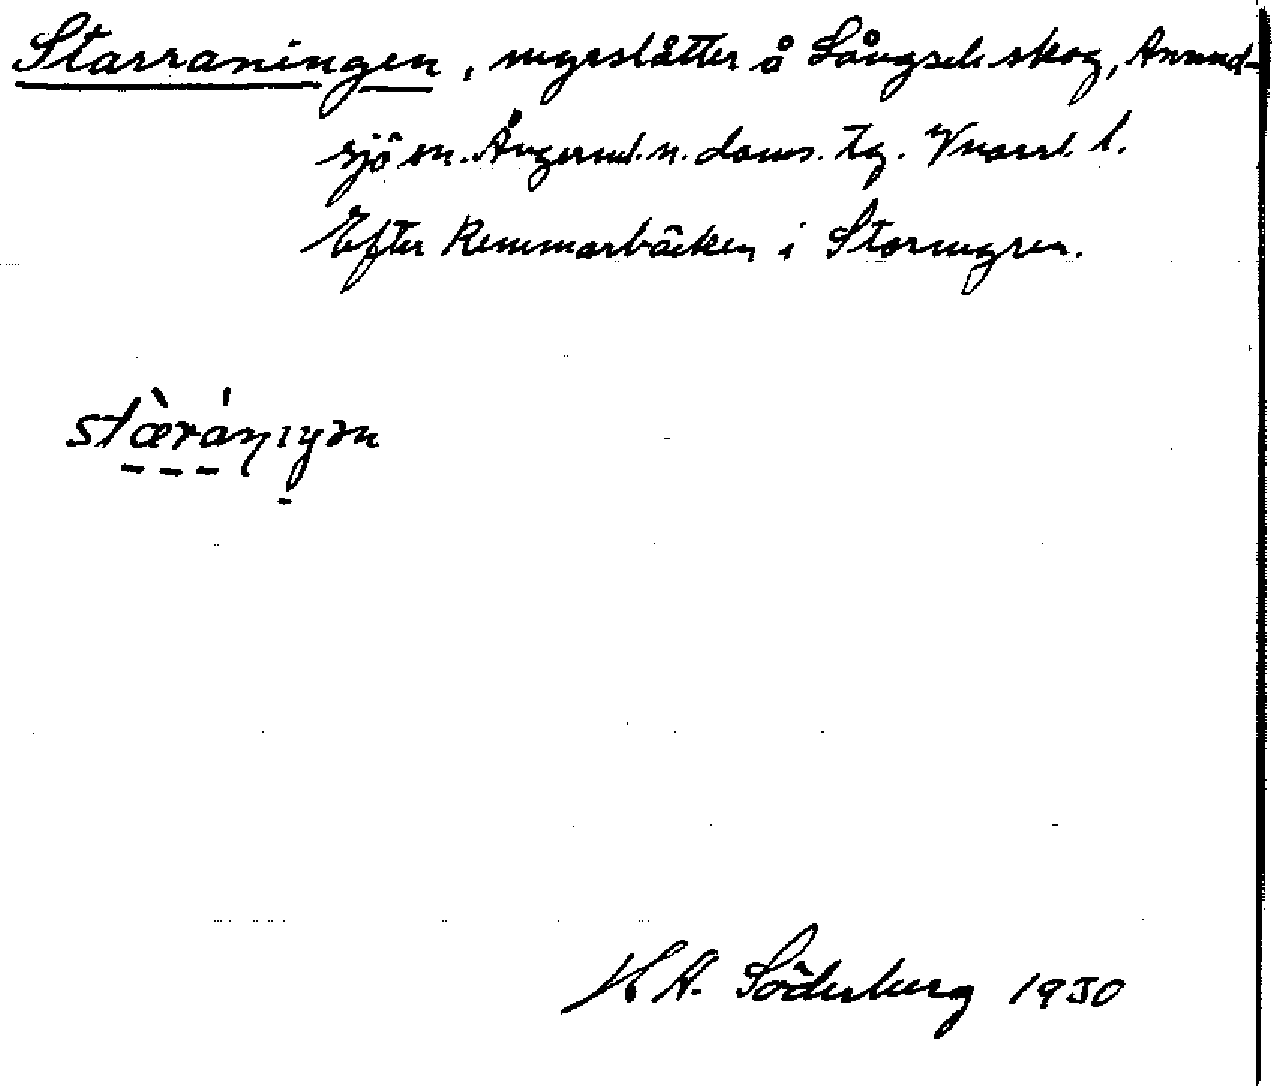 Starraningen, myrslåtter å Långsele skog, Anund-
sjö sn. Ångerml. n. doms. tg. Vnorrl. l.
Efter Remmarbäcken i Stormyren.
stæ̀rániŋən
H A. Söderberg 1930